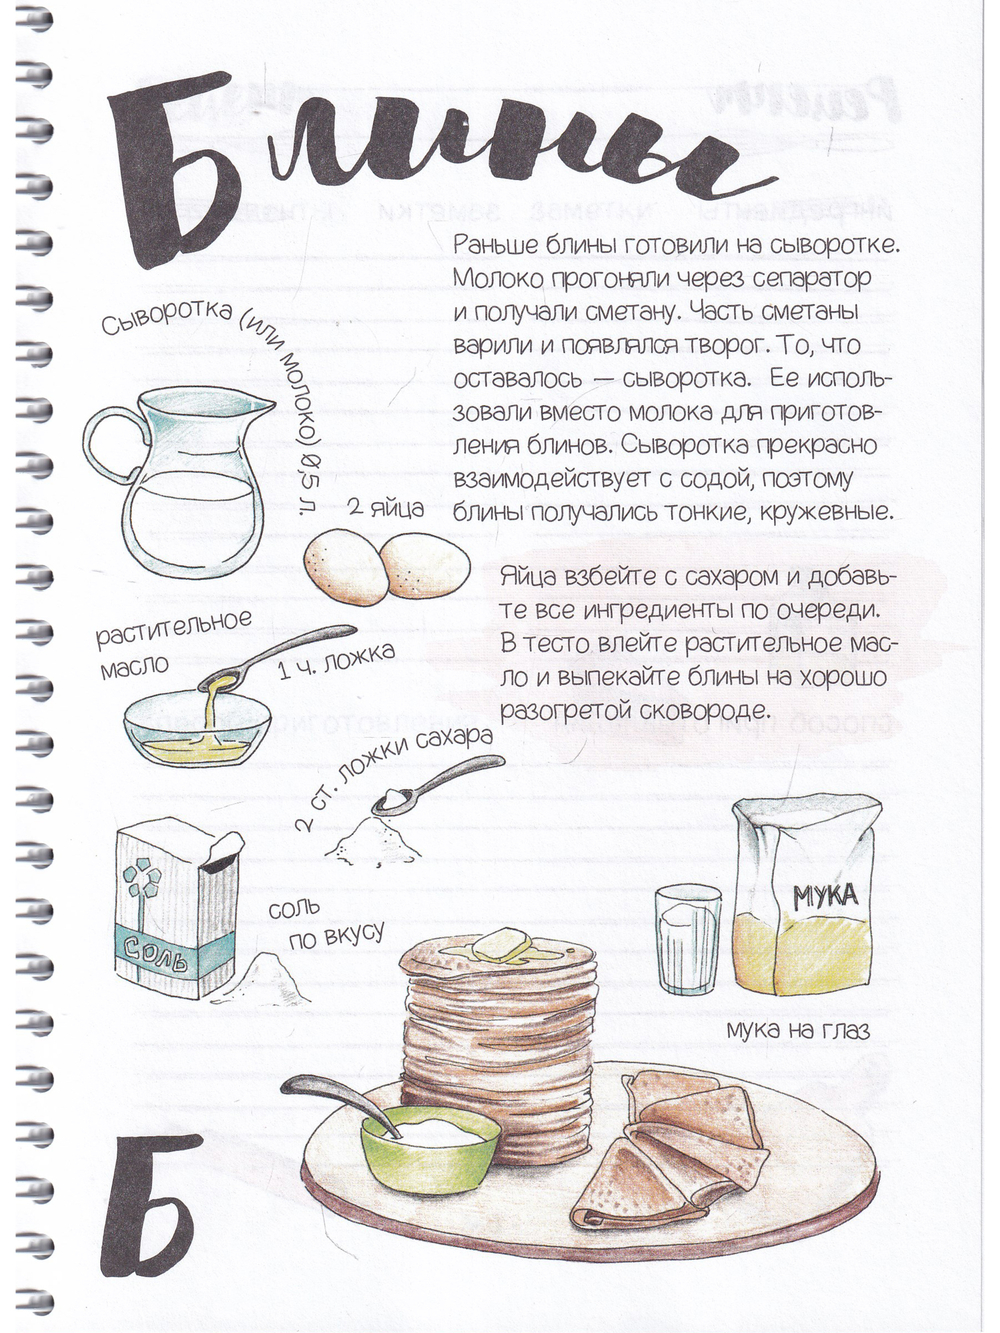 Блины
Раньше блины готовили на сыворотке.
Молоко прогоняли через сепаратор
и получали сметану. Часть сметаны
варили и появлялся творог. То, что
оставалось — сыворотка. Ее исполь-
зовали вместо молока для приготов-
ления блинов. Сыворотка прекрасно
взаимодействует с содой, поэтому
блины получались тонкие, кружевные.
Сыворотка (или молоко) 0,5 л.
2 яйца
Яйца взбейте с сахаром и добавь-
те все ингредиенты по очереди.
В тесто влейте растительное мас-
ло и выпекайте блины на хорошо
разогретой сковороде.
растительное
масло
1 ч. ложка
2 ст. ложки сахара
СОЛЬ
соль
по вкусу
МУКА
мука на глаз
Б